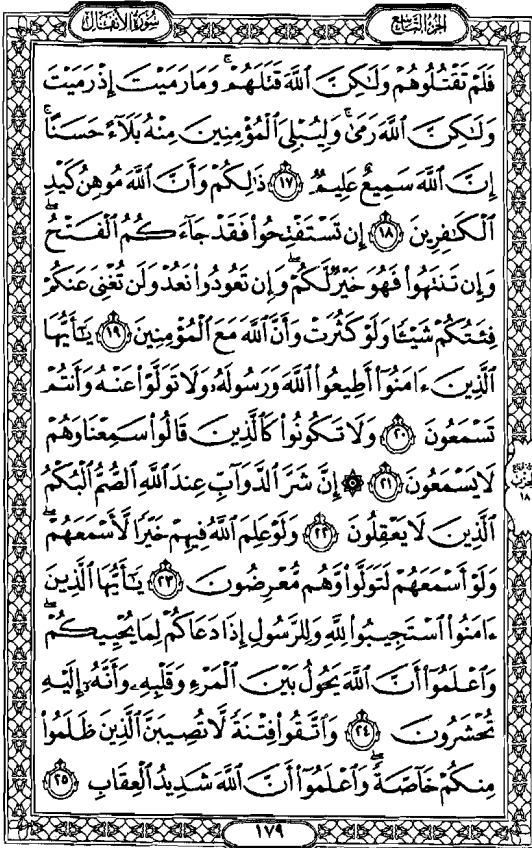 سُورَةُ الأَنفَالِ
الجُزءُ التَّاسِعُ
فَلَمْ تَقْتُلُوهُمْ وَلَٰكِنَّ ٱللَّهَ قَتَلَهُمْ ۚ وَمَا رَمَيْتَ إِذْ رَمَيْتَ
وَلَٰكِنَّ ٱللَّهَ رَمَىٰ ۚ وَلِيُبْلِىَ ٱلْمُؤْمِنِينَ مِنْهُ بَلَآءً حَسَنًا ۚ
إِنَّ ٱللَّهَ سَمِيعٌ عَلِيمٌ ١٧ ذَٰلِكُمْ وَأَنَّ ٱللَّهَ مُوهِنُ كَيْدِ
ٱلْكَٰفِرِينَ ١٨ إِن تَسْتَفْتِحُوا۟ فَقَدْ جَآءَكُمُ ٱلْفَتْحُ ۖ
وَإِن تَنتَهُوا۟ فَهُوَ خَيْرٌ لَّكُمْ ۖ وَإِن تَعُودُوا۟ نَعُدْ وَلَن تُغْنِىَ عَنكُمْ
فِئَتُكُمْ شَيْـًٔا وَلَوْ كَثُرَتْ وَأَنَّ ٱللَّهَ مَعَ ٱلْمُؤْمِنِينَ ١٩ يَٰٓأَيُّهَا
ٱلَّذِينَ ءَامَنُوٓا۟ أَطِيعُوا۟ ٱللَّهَ وَرَسُولَهُۥ وَلَا تَوَلَّوْا۟ عَنْهُ وَأَنتُمْ
تَسْمَعُونَ ٢٠ وَلَا تَكُونُوا۟ كَٱلَّذِينَ قَالُوا۟ سَمِعْنَا وَهُمْ
لَا يَسْمَعُونَ ٢١ ۞ إِنَّ شَرَّ ٱلدَّوَآبِّ عِندَ ٱللَّهِ ٱلصُّمُّ ٱلْبُكْمُ
ٱلَّذِينَ لَا يَعْقِلُونَ ٢٢ وَلَوْ عَلِمَ ٱللَّهُ فِيهِمْ خَيْرًا لَّأَسْمَعَهُمْ ۖ
وَلَوْ أَسْمَعَهُمْ لَتَوَلَّوا۟ وَّهُم مُّعْرِضُونَ ٢٣ يَٰٓأَيُّهَا ٱلَّذِينَ
ءَامَنُوا۟ ٱسْتَجِيبُوا۟ لِلَّهِ وَلِلرَّسُولِ إِذَا دَعَاكُمْ لِمَا يُحْيِيكُمْ ۖ
وَٱعْلَمُوٓا۟ أَنَّ ٱللَّهَ يَحُولُ بَيْنَ ٱلْمَرْءِ وَقَلْبِهِۦ وَأَنَّهُۥٓ إِلَيْهِ
تُحْشَرُونَ ٢٤ وَٱتَّقُوا۟ فِتْنَةً لَّا تُصِيبَنَّ ٱلَّذِينَ ظَلَمُوا۟
مِنكُمْ خَآصَّةً ۖ وَٱعْلَمُوٓا۟ أَنَّ ٱللَّهَ شَدِيدُ ٱلْعِقَابِ ٢٥
١٧٩
١٨